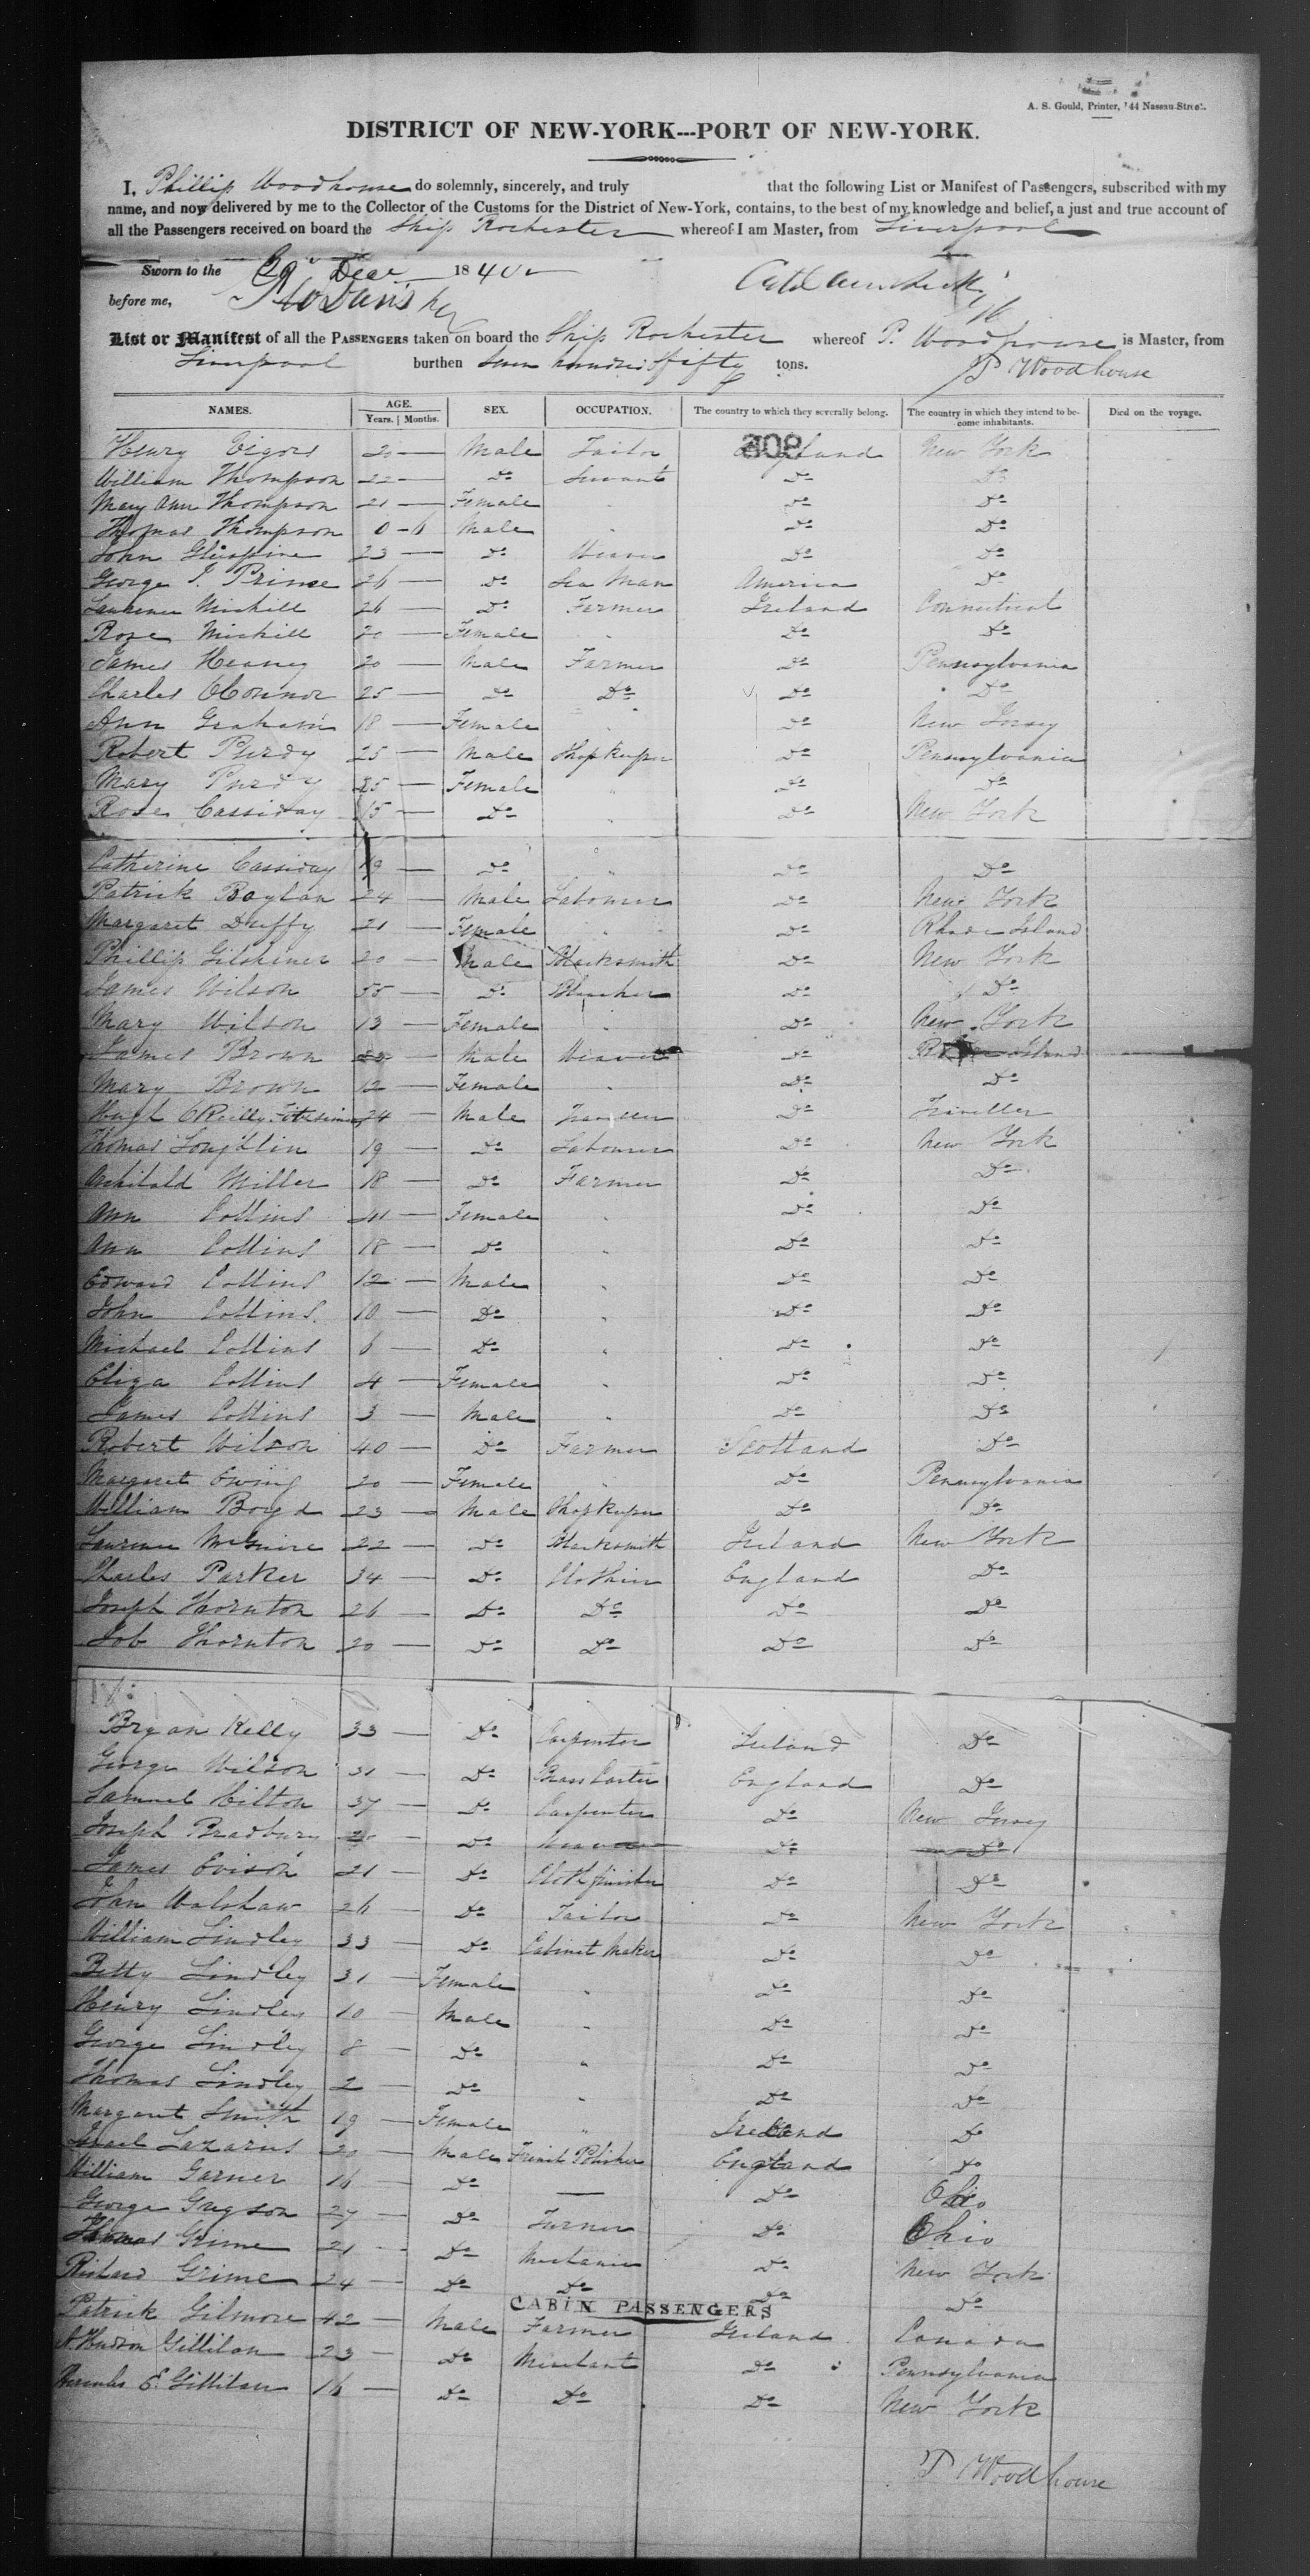 A. S. Gould, Printer, 144 Nassau Street.
DISTRICT OF NEW-YORK---PORT OF NEW-YORK.
I, Phillip Woodhouse do solemnly, sincerely, and truly that the following List or Manifest of Passengers, subscribed with my
name, and now delivered by me to the Collector of the Customs for the District of New-York, contains, to the best of my knowledge and belief, a just and true account of
all the Passengers received on board the Ship Rochester whereof I am Master, from Liverpool
Sworn to the Decr 1840
before me,
List or Manifest of all the PASSENGERS taken on board the Ship Rochester whereof P. Woodhouse is Master, from
Liverpool burthen Seven hundred & fifty tons. P Woodhouse
NAMES. AGE. SEX. OCCUPATION. The country to which they severally belong. The country in which they intend to become inhabitants. Died on the voyage.
Years. | Months.
808
Henry Vigors 20 — Male Tailor England New York
William Thompson 22 — Do Servant Do Do
Mary Ann Thompson 21 — Female " Do Do
Thomas Thompson 0 - 6 Male " Do Do
John 23 — Do Weaver Do Do
George J. Prince 26 — Do Sea Man America Do
Laurence Mickill 26 — Do Farmer Ireland Connecticut
Rose Mickill 20 — Female " Do Do
James Heaney 20 — Male Farmer Do Pennsylvania
Charles OConnor 25 — Do Do Do Do
Ann Graham 18 — Female " Do New Jersey
Robert Purdy 25 — Male Shopkeeper Do Pennsylvania
Mary Purdy 25 — Female " Do Do
Rose Cassiday 15 — Do " Do New York
Catherine Cassiday — Do " Do Do
Patrick Boylan 24 — Male Labourer Do New York
Margaret Duffy 21 — Female " Do Rhode Island
Phillip Gilshiner 20 — Male Blacksmith Do New York
James Wilson 55 — Do Bleacher Do Do
Mary Wilson 13 — Female " Do New York
James Brown — Male Weaver Do Rhode Island
Mary Brown 12 — Female " Do Do
Hugh O'Reilly Fitzsimmons 24 — Male Traveller Do Traveller
Thomas Loughlin 19 — Do Labourer Do New York
Archibald Miller 18 — Do Farmer Do Do
Ann Collins — Female " Do Do
Ann Collins 18 — Do " Do Do
Edward Collins 12 — Male " Do Do
John Collins 10 — Do " Do Do
Michael Collins 6 — Do " Do Do
Eliza Collins 4 — Female " Do Do
James Collins 3 — Male " Do Do
Robert Wilson 40 — Do Farmer Scotland Do
Margaret Ewing 20 — Female " Do Pennsylvania
William Boyd 23 — Male Shopkeeper Do Do
Laurence McGuire 22 — Do Blacksmith Ireland New York
Charles Parker 34 — Do Clothier England Do
Joseph Thornton 26 — Do Do Do Do
Job Thornton 20 — Do Do Do Do
Bryan Kelly 33 — Do Carpenter Ireland Do
George Wilson 31 — Do Brass Caster England Do
Samuel Hilton 37 — Do Carpenter Do New Jersey
Joseph Bradbury — Do Weaver Do Do
James Evison 21 — Do Cloth finisher Do Do
John Walshaw 26 — Do Tailor Do New York
William Lindley 33 — Do Cabinet Maker Do Do
Betty Lindley 31 — Female " Do Do
Henry Lindley 10 — Male " Do Do
George Lindley 8 — Do " Do Do
Thomas Lindley 2 — Do " Do Do
Margaret Smith 19 — Female " Ireland Do
Israel Lazarus 20 — Male Polisher England Do
William Garner 16 — Do — Do Ohio
George Gregson 27 — Do Turner Do Ohio
Thomas Grime 21 — Do Mechanic Do New York
Richard Grime 24 — Do Do Do Do
CABIN PASSENGERS
Patrick Gilmore 42 — Male Farmer Ireland Canada
A. Hudson Gillilan 23 — Do Merchant Do Pennsylvania
Hercules E. Gillilan 16 — Do Do Do New York
P Woodhouse